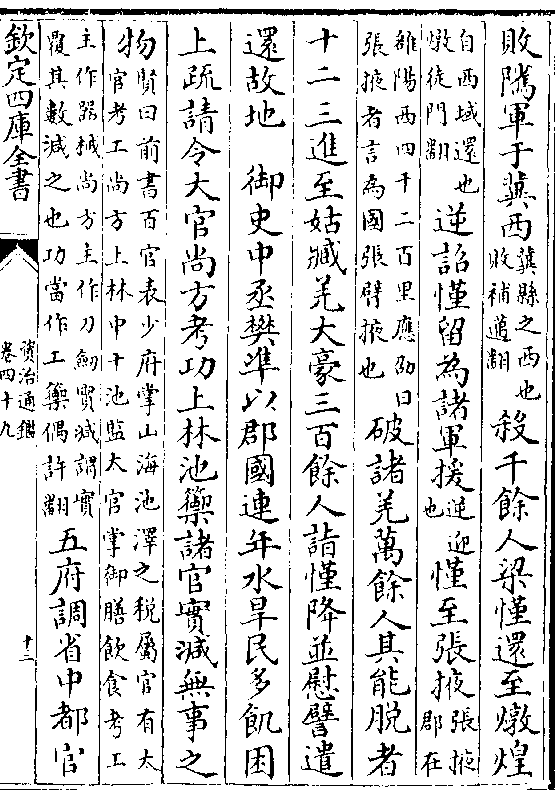 敗隲軍于冀西冀縣之西也敗補邁翻殺千餘人梁慬還至燉煌
自西域還也燉徒門翻逆詔慬留為諸軍援逆迎也慬至張掖張掖郡在
雒陽西四千二百里應劭曰張掖者言為國張臂掖也破諸羌萬餘人其能脱者
十二三進至姑臧羌大豪三百餘人詣慬降並慰譬遣
還故地　御史中丞樊準以郡國連年水旱民多飢困
上疏請令大官尚方考功上林池籞諸官實減無事之
物賢曰前書百官表少府掌山海池澤之税屬官有大官考工尚方上林中十池監太官掌御膳飲食考工
主作器械尚方主作刀劒實減謂實覆其數減之也功當作工籞偶許翻五府調省中都官
欽定四庫全書
資治通鑑
卷四十九
十二